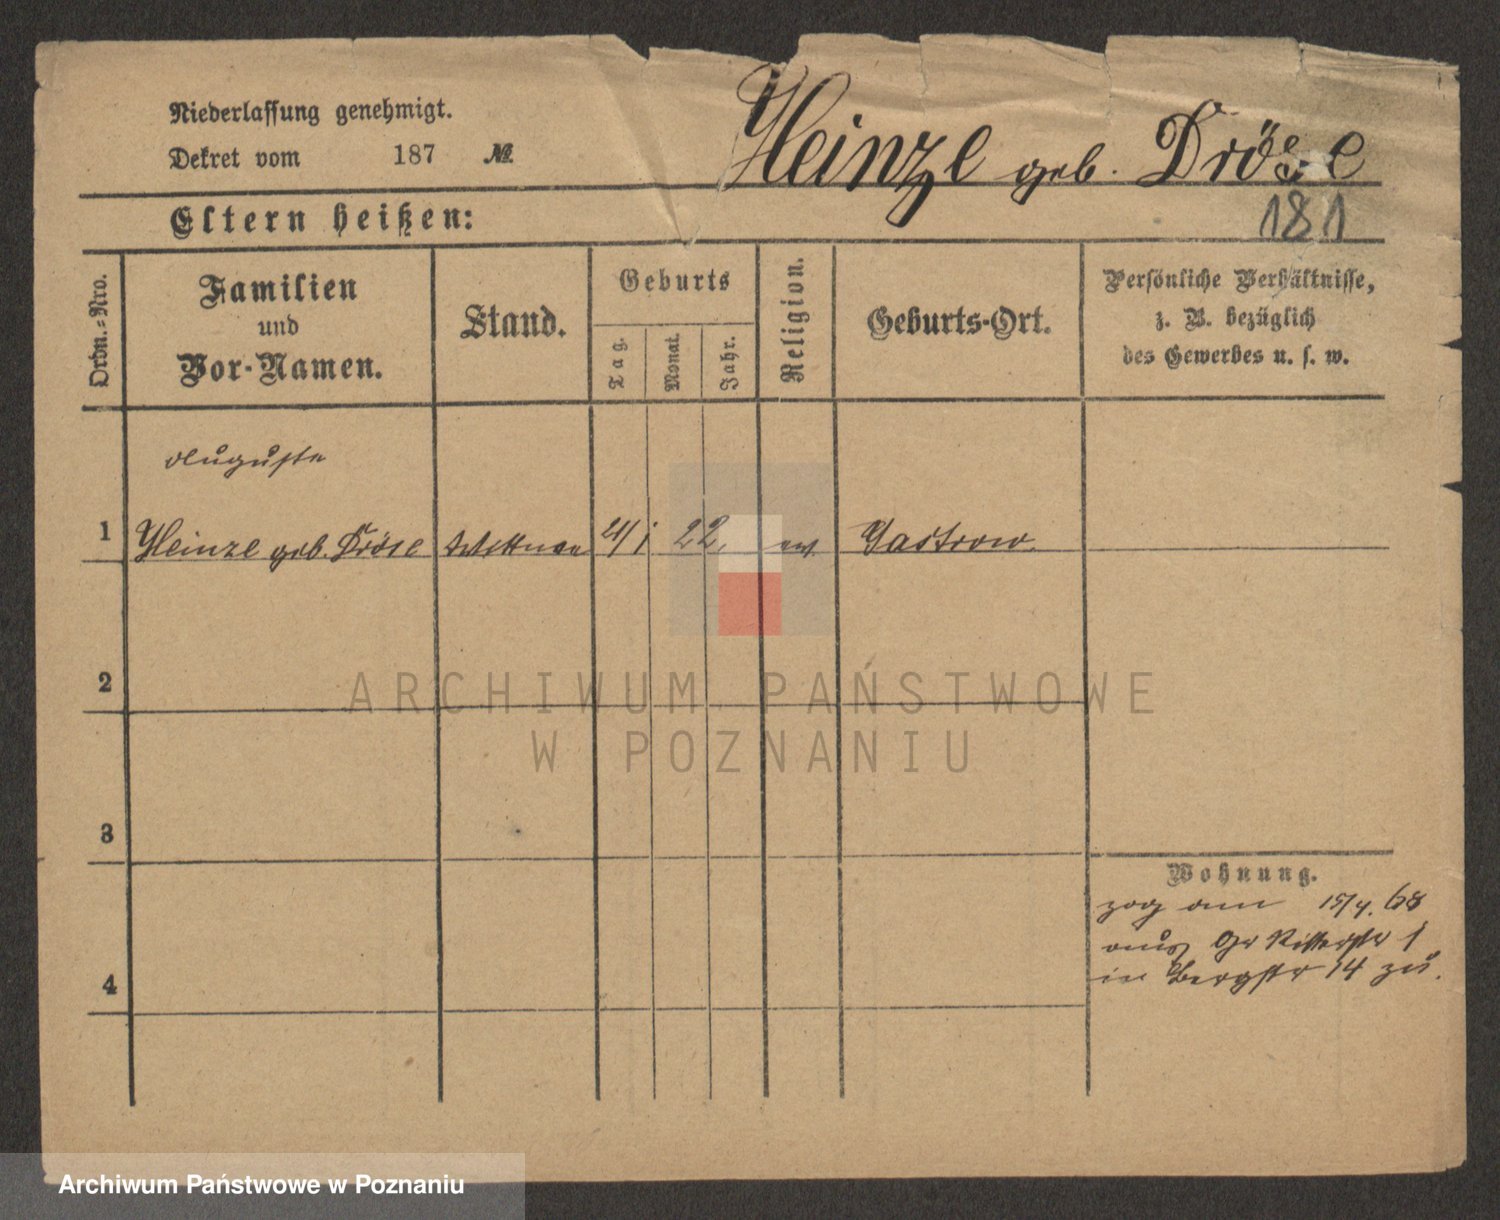 Niederlassung genehmigt.
Dekret vom 187 №
Heinze geb. Dröse
181
Eltern heißen:
Ordn.-Nro.
Familien
und
Vor-Namen.
Stand.
Geburts
Tag.
Monat.
Jahr.
Religion.
Geburts-Ort.
Persönliche Verhältnisse,
z. B. bezüglich
des Gewerbes u. s. w.
Auguste
1 Heinze geb. Dröse Wittwe 22. ev. Gastrow
2
ARCHIWUM PAŃSTWOWE
W POZNANIU
3
Wohnung.
zog am 15/4. 68
aus Gr Ritterstr 1
in Bergstr 14 zu.
4
Archiwum Państwowe w Poznaniu